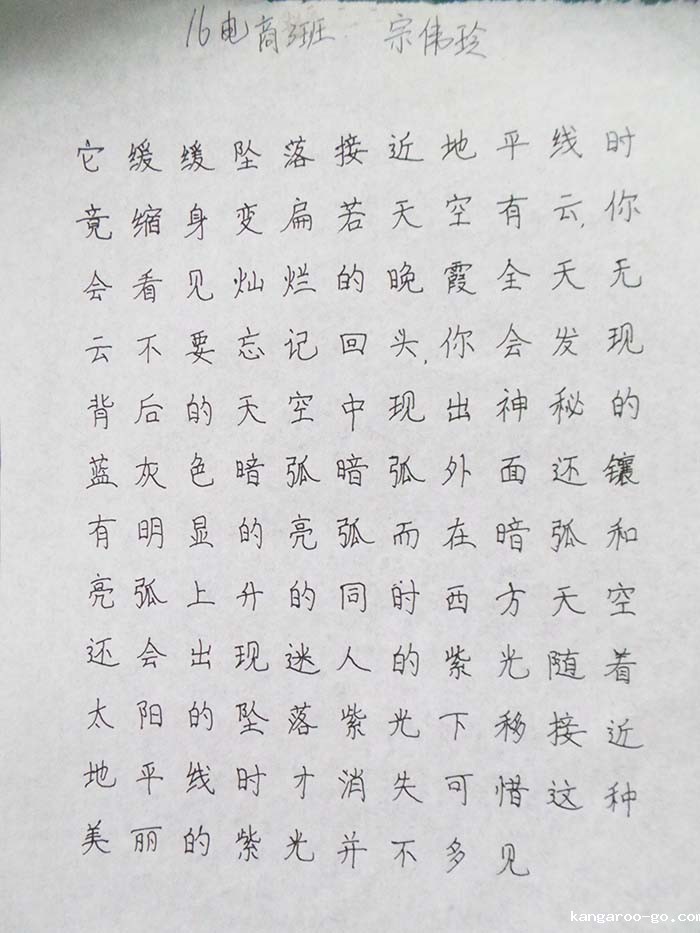 16电商班 宗伟玲
它缓缓坠落接近地平线时
竟缩身变扁若天空有云,你
会看见灿烂的晚霞全天无
云不要忘记回头,你会发现
背后的天空中现出神秘的
蓝灰色暗弧暗弧外面还镶
有明显的亮弧而在暗弧和
亮弧上升的同时西方天空
还会出现迷人的紫光随着
太阳的坠落紫光下移接近
地平线时才消失可惜这种
美丽的紫光并不多见
kangaroo-go.com